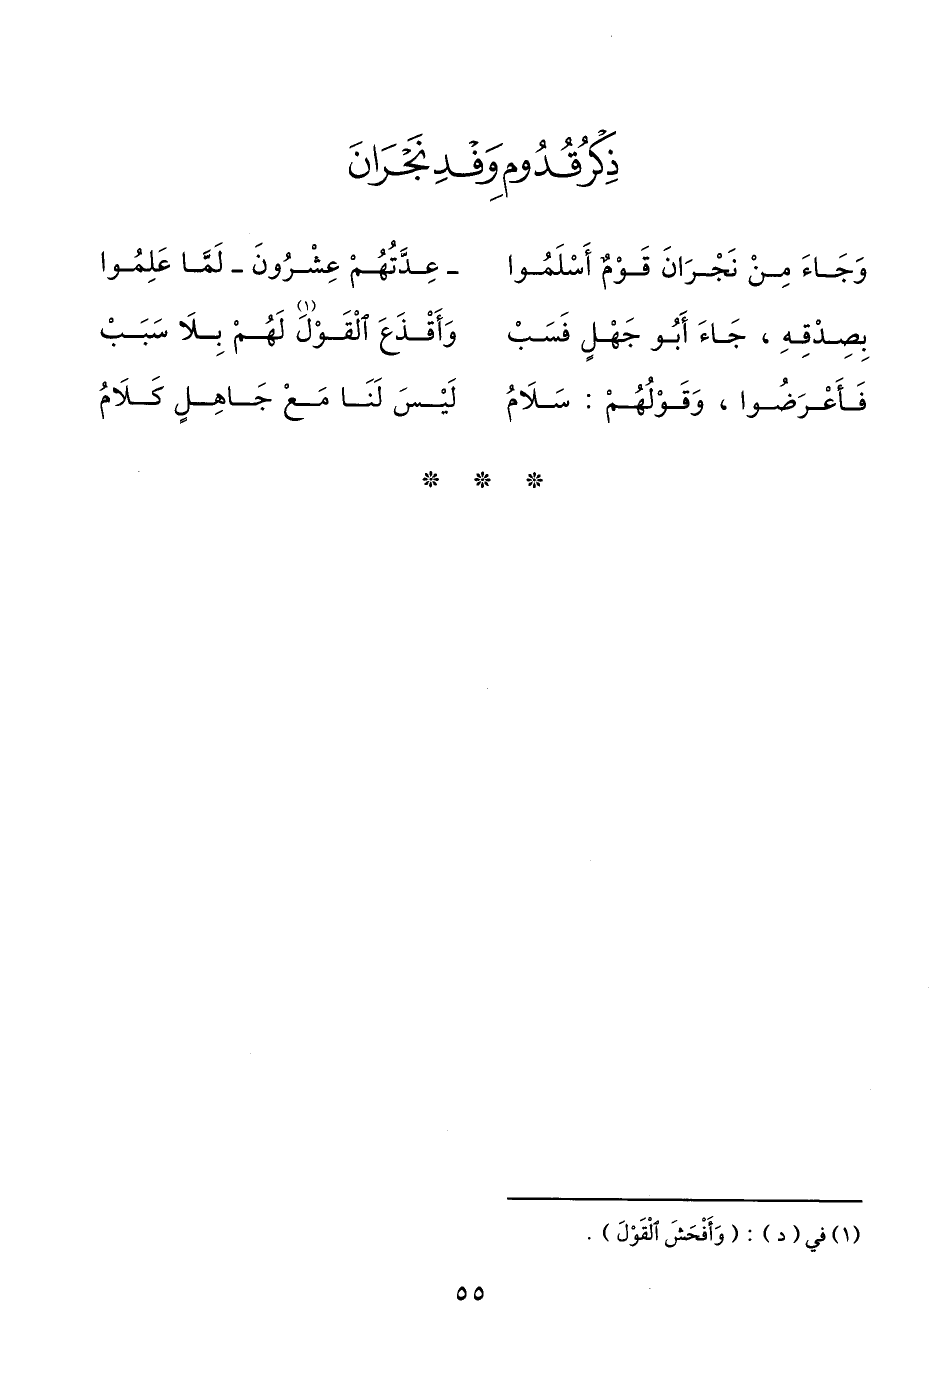 ذِكْرُ قُدُومِ وَفْدِ نَجْرَانَ
وَجَاءَ مِنْ نَجْرَانَ قَوْمٌ أَسْلَمُوا ـ عِدَّتُهُمْ عِشْرُونَ ـ لَمَّا عَلِمُوا
بِصِدْقِهِ ، جَاءَ أَبُو جَهْلٍ فَسَبْ وَأَقْذَعَ ٱلْقَوْلَ(١) لَهُمْ بِلَا سَبَبْ
فَأَعْرَضُوا ، وَقَوْلُهُمْ : سَلَامُ لَيْسَ لَنَا مَعْ جَاهِلٍ كَلَامُ
* * *
(١) في ( د ) : ( وَأَفْحَشَ ٱلْقَوْلَ ) .
٥٥